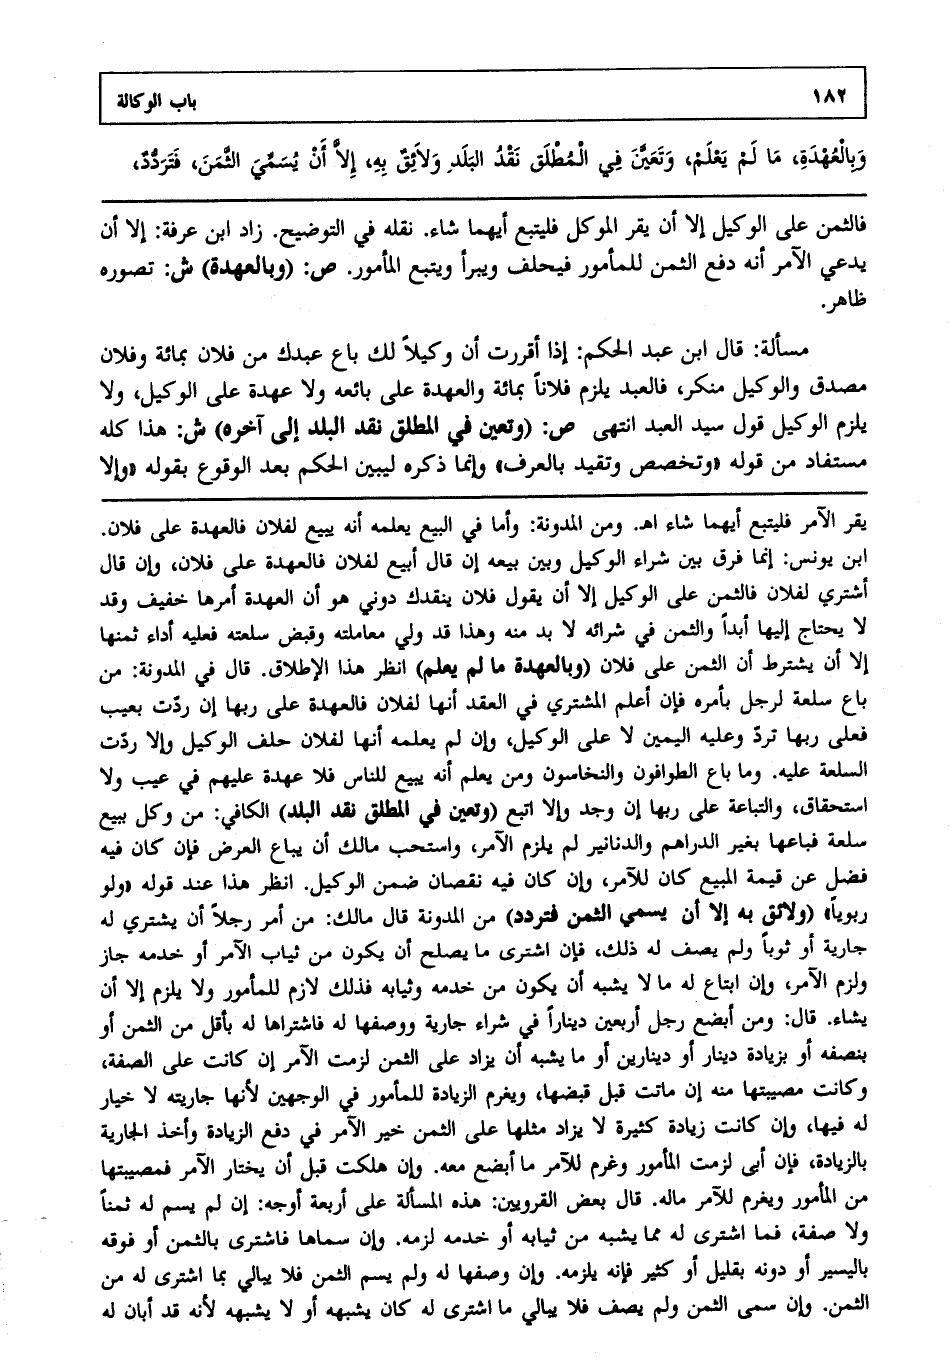 ١٨٢
باب الوكالة
وَبِالْعُهْدَةِ، مَا لَمْ يَعْلَمْ، وَتَعَيَّنَ فِي الْمُطْلَقِ نَقْدُ البَلَدِ وَلاَئِقٌ بِهِ، إِلاَّ أَنْ يُسَمِّيَ الثَّمَنَ، فَتَرَدُّدٌ،
فالثمن على الوكيل إلا أن يقر الموكل فليتبع أيهما شاء. نقله في التوضيح. زاد ابن عرفة: إلا أن
يدعي الآمر أنه دفع الثمن للمأمور فيحلف ويبرأ ويتبع المأمور. ص: (وبالعهدة) ش: تصوره
ظاهر.
مسألة: قال ابن عبد الحكم: إذا أقررت أن وكيلاً لك باع عبدك من فلان بمائة وفلان
مصدق والوكيل منكر، فالعبد يلزم فلاناً بمائة والعهدة على بائعه ولا عهدة على الوكيل، ولا
يلزم الوكيل قول سيد العبد انتهى ص: (وتعين في المطلق نقد البلد إلى آخره) ش: هذا كله
مستفاد من قوله «وتخصص وتقيد بالعرف» وإنما ذكره ليبين الحكم بعد الوقوع بقوله «وإلا
يقر الآمر فليتبع أيهما شاء اهـ. ومن المدونة: وأما في البيع يعلمه أنه يبيع لفلان فالعهدة على فلان.
ابن يونس: إنما فرق بين شراء الوكيل وبين بيعه إن قال أبيع لفلان فالعهدة على فلان، وإن قال
أشتري لفلان فالثمن على الوكيل إلا أن يقول فلان ينقدك دوني هو أن العهدة أمرها خفيف وقد
لا يحتاج إليها أبداً والثمن في شرائه لا بد منه وهذا قد ولي معاملته وقبض سلعته فعليه أداء ثمنها
إلا أن يشترط أن الثمن على فلان (وبالعهدة ما لم يعلم) انظر هذا الإطلاق. قال في المدونة: من
باع سلعة لرجل بأمره فإن أعلم المشتري في العقد أنها لفلان فالعهدة على ربها إن ردّت بعيب
فعلى ربها تردّ وعليه اليمين لا على الوكيل، وإن لم يعلمه أنها لفلان حلف الوكيل وإلا ردّت
السلعة عليه. وما باع الطوافون والنخاسون ومن يعلم أنه يبيع للناس فلا عهدة عليهم في عيب ولا
استحقاق، والتباعة على ربها إن وجد وإلا اتبع (وتعين في المطلق نقد البلد) الكافي: من وكل ببيع
سلعة فباعها بغير الدراهم والدنانير لم يلزم الآمر، واستحب مالك أن يباع العرض فإن كان فيه
فضل عن قيمة المبيع كان للآمر، وإن كان فيه نقصان ضمن الوكيل. انظر هذا عند قوله «ولو
ربوياً» (ولائق به إلا أن يسمي الثمن فتردد) من المدونة قال مالك: من أمر رجلاً أن يشتري له
جارية أو ثوباً ولم يصف له ذلك، فإن اشترى ما يصلح أن يكون من ثياب الآمر أو خدمه جاز
ولزم الآمر، وإن ابتاع له ما لا يشبه أن يكون من خدمه وثيابه فذلك لازم للمأمور ولا يلزم إلا أن
يشاء. قال: ومن أبضع رجل أربعين ديناراً في شراء جارية ووصفها له فاشتراها له بأقل من الثمن أو
بنصفه أو بزيادة دينار أو دينارين أو ما يشبه أن يزاد على الثمن لزمت الآمر إن كانت على الصفة،
وكانت مصيبتها منه إن ماتت قبل قبضها، ويغرم الزيادة للمأمور في الوجهين لأنها جاريته لا خيار
له فيها، وإن كانت زيادة كثيرة لا يزاد مثلها على الثمن خير الآمر في دفع الزيادة وأخذ الجارية
بالزيادة، فإن أبى لزمت المأمور وغرم للآمر ما أبضع معه. وإن هلكت قبل أن يختار الآمر فمصيبتها
من المأمور ويغرم للآمر ماله. قال بعض القرويين: هذه المسألة على أربعة أوجه: إن لم يسم له ثمناً
ولا صفة، فما اشترى له مما يشبه من ثيابه أو خدمه لزمه. وإن سماها فاشترى بالثمن أو فوقه
باليسير أو دونه بقليل أو كثير فإنه يلزمه. وإن وصفها له ولم يسم الثمن فلا يبالي بما اشترى له من
الثمن. وإن سمى الثمن ولم يصف فلا يبالي ما اشترى له كان يشبهه أو لا يشبهه لأنه قد أبان له